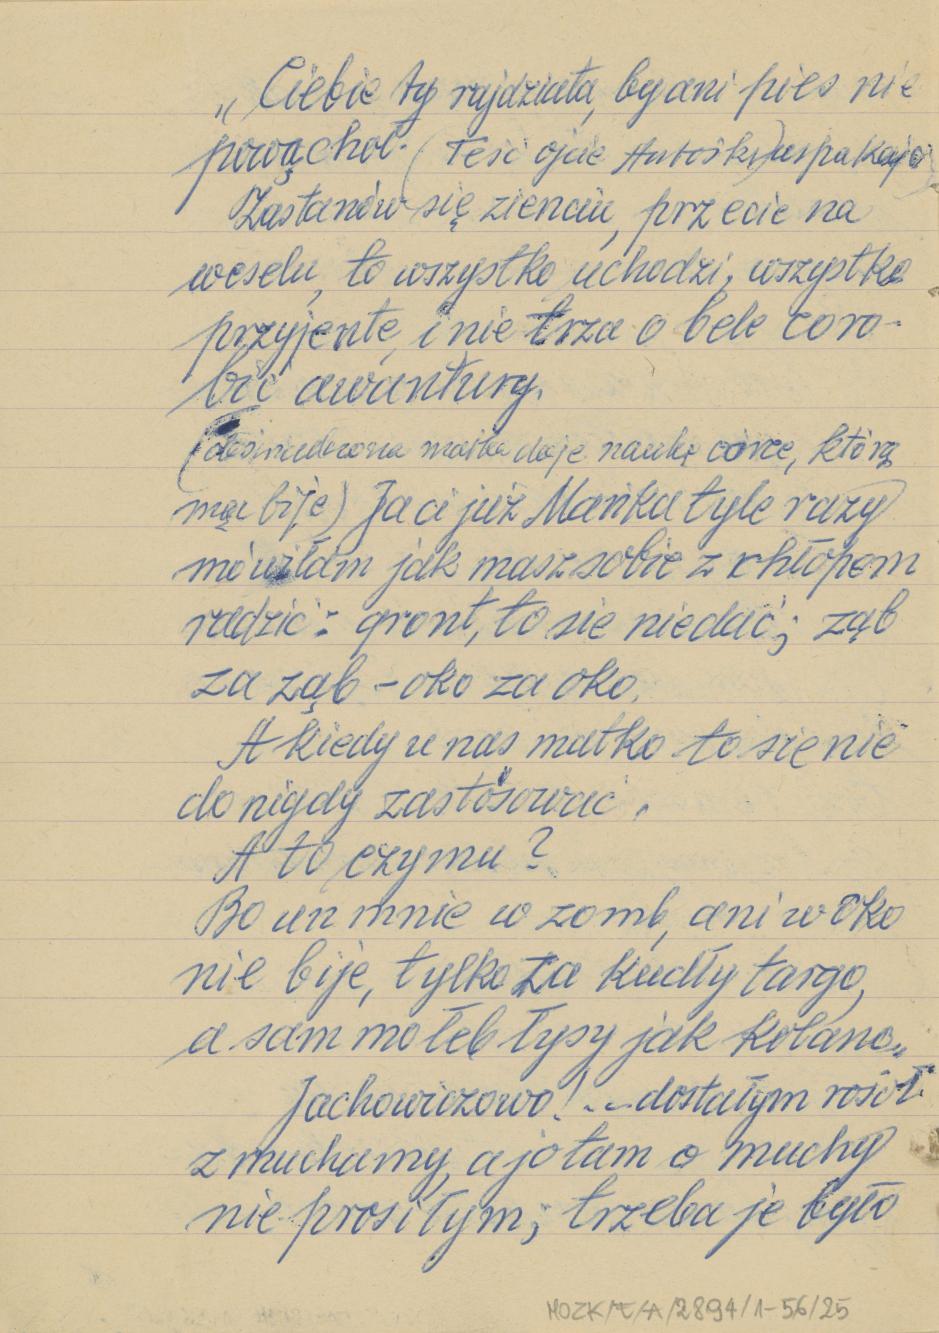 „Ciebie ty rajdziała, by ani pies nie
powąchoł. (Teść ojcie Antośki) uspakajo
Zastanów się zienciu, przecie na
weselu, to wszystko uchodzi, wszystko
przyjente, i nie trza o bele co ro-
bić awantury.
(doświadczona matka daje naukę córce, którą
mąż bije) Ja ci już Mańka tyle razy
mówiłam jak masz sobie z chłopem
radzić: gront, to sie niedać; ząb
za ząb – oko za oko.
A kiedy u nas matko to się nie
do nigdy zastosować.
A to czymu?
Bo un mnie w zomb, ani w oko
nie bije, tylko za kudły targo,
a sam mo łeb łysy jak kolano.„
Jachowiczowo! -- dostałym rosół
z muchamy, a jo tam o muchy
nie prosiłym; trzeba je było
MOZK/E/A/2894/1-56/25